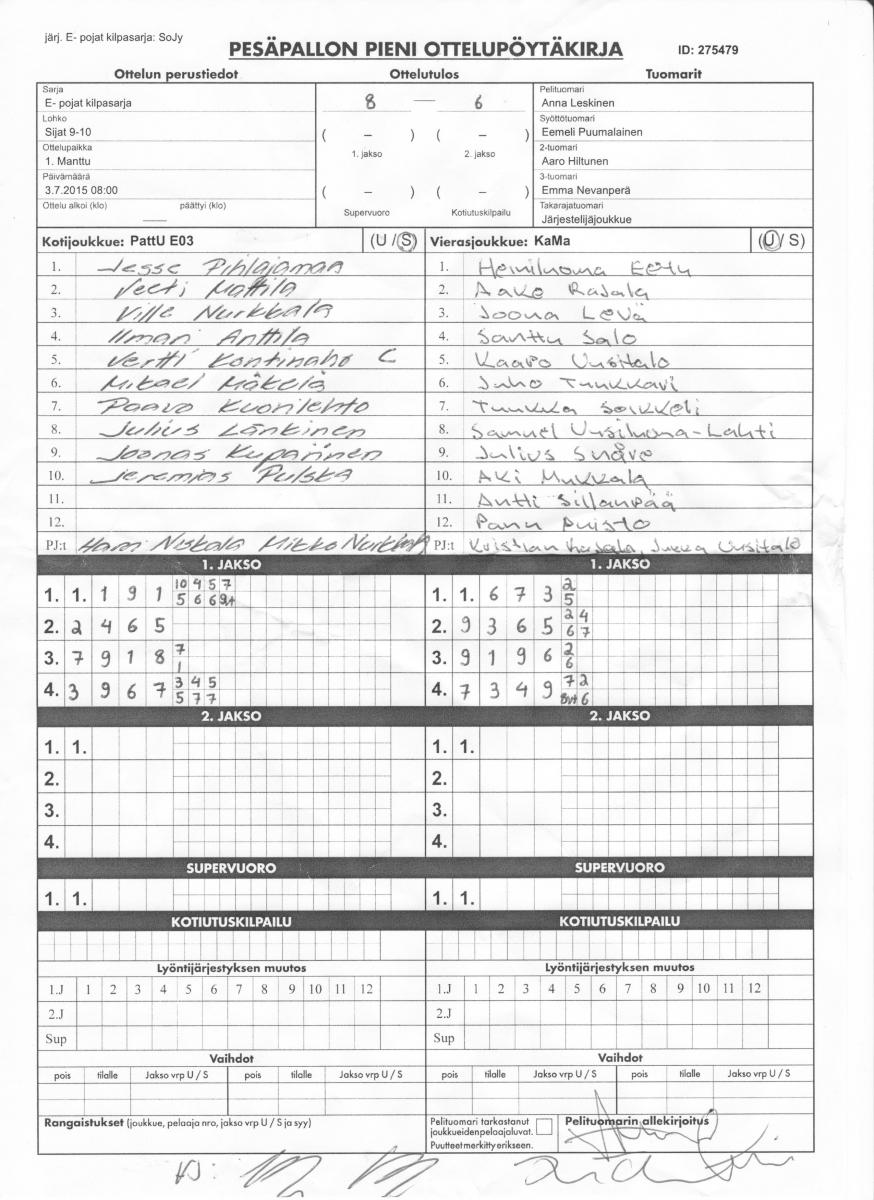 järj. E- pojat kilpasarja: SoJy
PESÄPALLON PIENI OTTELUPÖYTÄKIRJA
ID: 275479
Ottelun perustiedot
Ottelutulos
Tuomarit
Sarja
E- pojat kilpasarja
Lohko
Sijat 9-10
Ottelupaikka
1. Manttu
Päivämäärä
3.7.2015 08:00
Ottelu alkoi (klo) päättyi (klo)
8 — 6
( – ) ( – )
1. jakso 2. jakso
( – ) ( – )
Supervuoro Kotiutuskilpailu
Pelituomari
Anna Leskinen
Syöttötuomari
Eemeli Puumalainen
2-tuomari
Aaro Hiltunen
3-tuomari
Emma Nevanperä
Takarajatuomari
Järjestelijäjoukkue
Kotijoukkue: PattU E03 (U / S)
1. Jesse Pihlajamaa
2. Veeti Mattila
3. Ville Nurkkala
4. Ilmari Anttila
5. Vertti Kontinaho C
6. Mikael Mäkelä
7. Paavo Kuorilehto
8. Julius Länkinen
9. Joonas Kuparinen
10. Jeremias Pulska
11.
12.
PJ:t Harri Niskala Mikko Nurkkala
Vierasjoukkue: KaMa (U / S)
1. Hemiluoma Eetu
2. Aake Rajala
3. Joona Levä
4. Santtu Salo
5. Kaapo Uusitalo
6. Juho Tunkkari
7. Tuukka Soikkeli
8. Samuel Uusiluoma-Lahti
9. Julius
10. Aki Mukkala
11. Antti Sillanpää
12. Panu Puisto
PJ:t Kristian Rajala, Jukka Uusitalo
1. JAKSO
1. 1. 1 9 1 10 4 5 7
5 6 6
2. 2 4 6 5
3. 7 9 1 8 7
1
4. 3 9 6 7 3 4 5
5 7 7
1. JAKSO
1. 1. 6 7 3 2
5
2. 9 3 6 5 2 4
6 7
3. 9 1 9 6 2
6
4. 7 3 4 9 7 2
6
2. JAKSO
1. 1.
2.
3.
4.
2. JAKSO
1. 1.
2.
3.
4.
SUPERVUORO
1. 1.
SUPERVUORO
1. 1.
KOTIUTUSKILPAILU
KOTIUTUSKILPAILU
Lyöntijärjestyksen muutos
1.J 1 2 3 4 5 6 7 8 9 10 11 12
2.J
Sup
Lyöntijärjestyksen muutos
1.J 1 2 3 4 5 6 7 8 9 10 11 12
2.J
Sup
Vaihdot
pois tilalle Jakso vrp U / S pois tilalle Jakso vrp U / S
Vaihdot
pois tilalle Jakso vrp U / S pois tilalle Jakso vrp U / S
Rangaistukset (joukkue, pelaaja nro, jakso vrp U / S ja syy)
Pelituomari tarkastanut
joukkueidenpelaajaluvat.
Puutteet merkitty erikseen.
Pelituomarin allekirjoitus